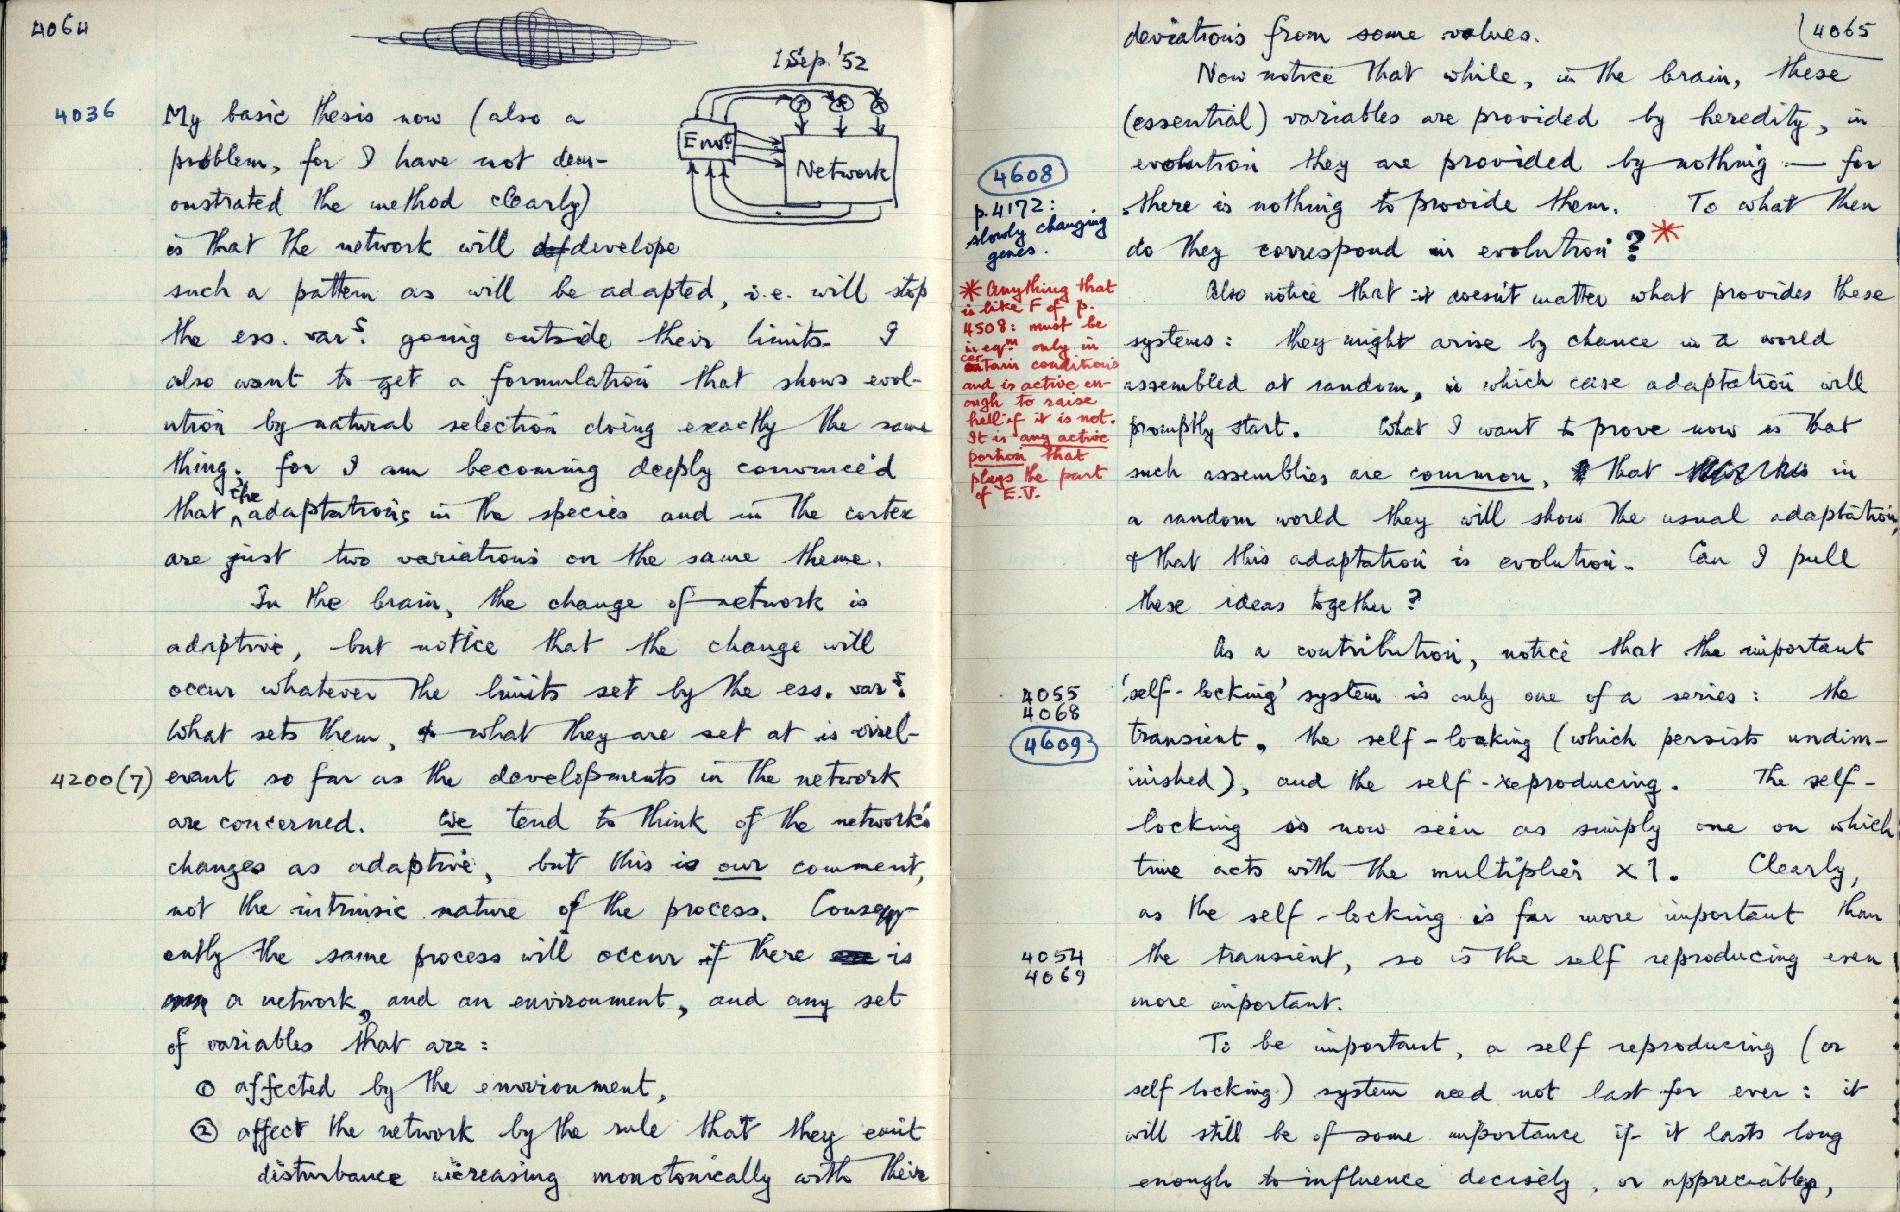 4064
1 Sep. '52
4036
My basic thesis now (also a
problem, for I have not dem-
onstrated the method clearly)
is that the network will develope
Envt
Network
such a pattern as will be adapted, i.e. will stop
the ess. vars. going outside their limits. I
also want to get a formulation that shows evol-
ution by natural selection doing exactly the same
thing. For I am becoming deeply convinced
that the adaptations in the species and in the cortex
are just two variations on the same theme.
In the brain, the change of network is
adaptive, but notice that the change will
occur whatever the limits set by the ess. vars.
What sets them, & what they are set at is irrel-
4200(7)
evant so far as the developments in the network
are concerned. We tend to think of the network's
changes as adaptive, but this is our comment,
not the intrinsic nature of the process. Consequ-
ently the same process will occur if there is
a network, and an environment, and any set
of variables that are:
① affected by the environment,
② affect the network by the rule that they emit
disturbance increasing monotonically with their
4065
deviations from some values.
Now notice that while, in the brain, these
(essential) variables are provided by heredity, in
evolution they are provided by nothing — for
there is nothing to provide them. To what then
do they correspond in evolution? *
4608
p. 4172:
slowly changing
genes.
* Anything that
is like F of p.
4508: must be
in eqm only in
certain conditions
and is active en-
ough to raise
hell if it is not.
It is any active
portion that
plays the part
of E.V.
Also notice that it doesn't matter what provides these
systems: they might arise by chance in a world
assembled at random, in which case adaptation will
promptly start. What I want to prove now is that
such assemblies are common, that this in
a random world they will show the usual adaptation,
& that this adaptation is evolution. Can I pull
these ideas together?
As a contribution, notice that the important
4055
4068
4609
'self-locking' system is only one of a series: the
transient, the self-locking (which persists undim-
inished), and the self-reproducing. The self-
locking is now seen as simply one on which
time acts with the multiplier x1. Clearly,
as the self-locking is far more important than
4054
4069
the transient, so is the self reproducing even
more important.
To be important, a self reproducing (or
self locking) system need not last for ever: it
will still be of some importance if it lasts long
enough to influence decisely, or appreciably,